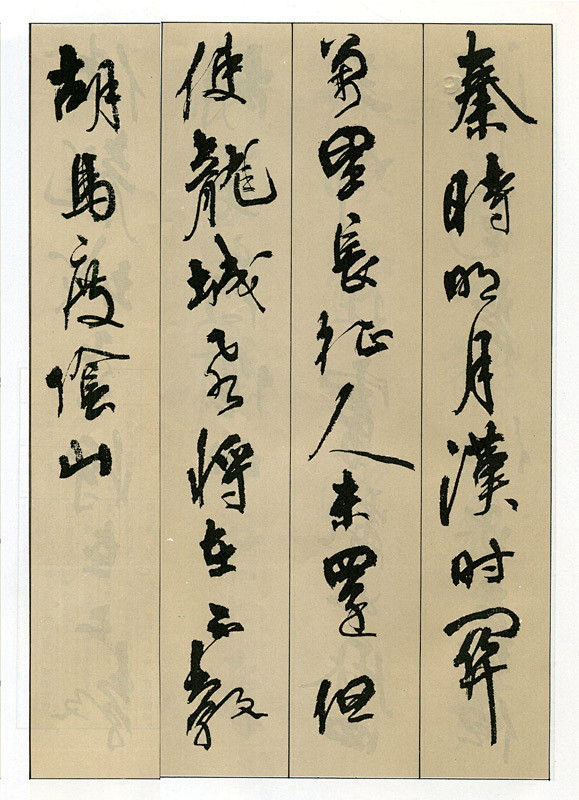 秦時明月漢时關
萬里長征人未還但
使龍城飛将在不教
胡馬度陰山